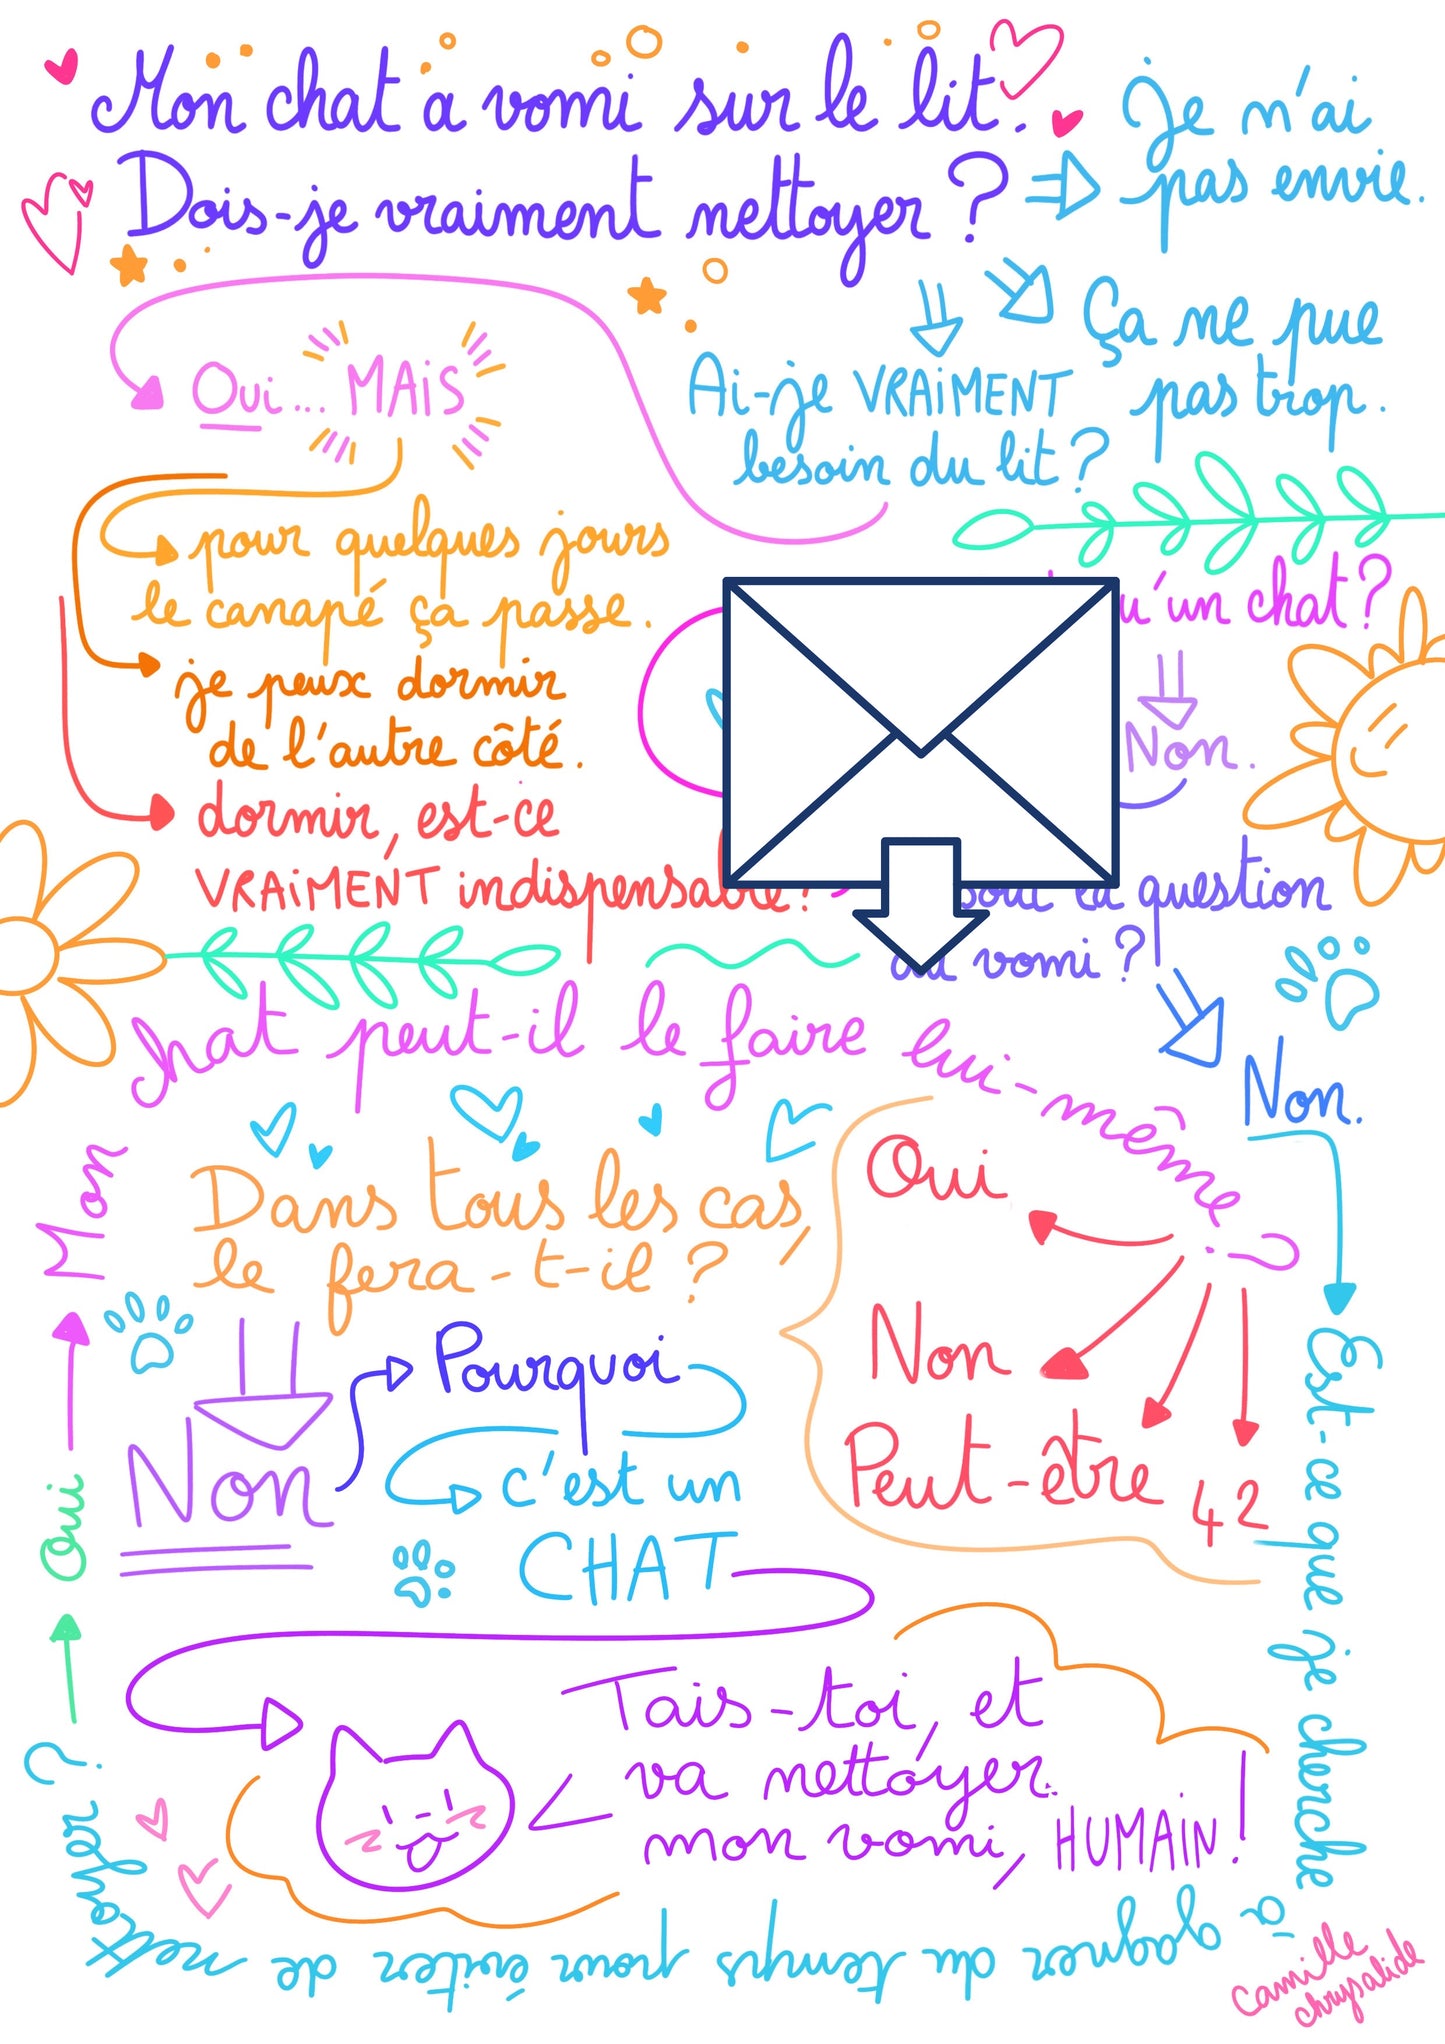 Mon chat a vomi sur le lit.
Dois-je vraiment nettoyer ?
Je n'ai
pas envie.
Ça ne pue
pas trop.
Ai-je VRAiMENT
besoin du lit ?
Oui... MAiS
pour quelques jours
le canapé ça passe.
je peux dormir
de l'autre côté.
dormir, est-ce
VRAiMENT indispensable ?
qu'un chat ?
Non.
la question
du vomi ?
Non.
Est-ce que je cherche
à gagner du temps pour éviter de nettoyer ?
Oui
Mon chat peut-il le faire lui-même ?
Oui
Non
Peut-être
42
Dans tous les cas,
le fera-t-il ?
Non
Pourquoi
c'est un
CHAT
Tais-toi, et
va nettoyer
mon vomi, HUMAiN !
Camille
chrysalide